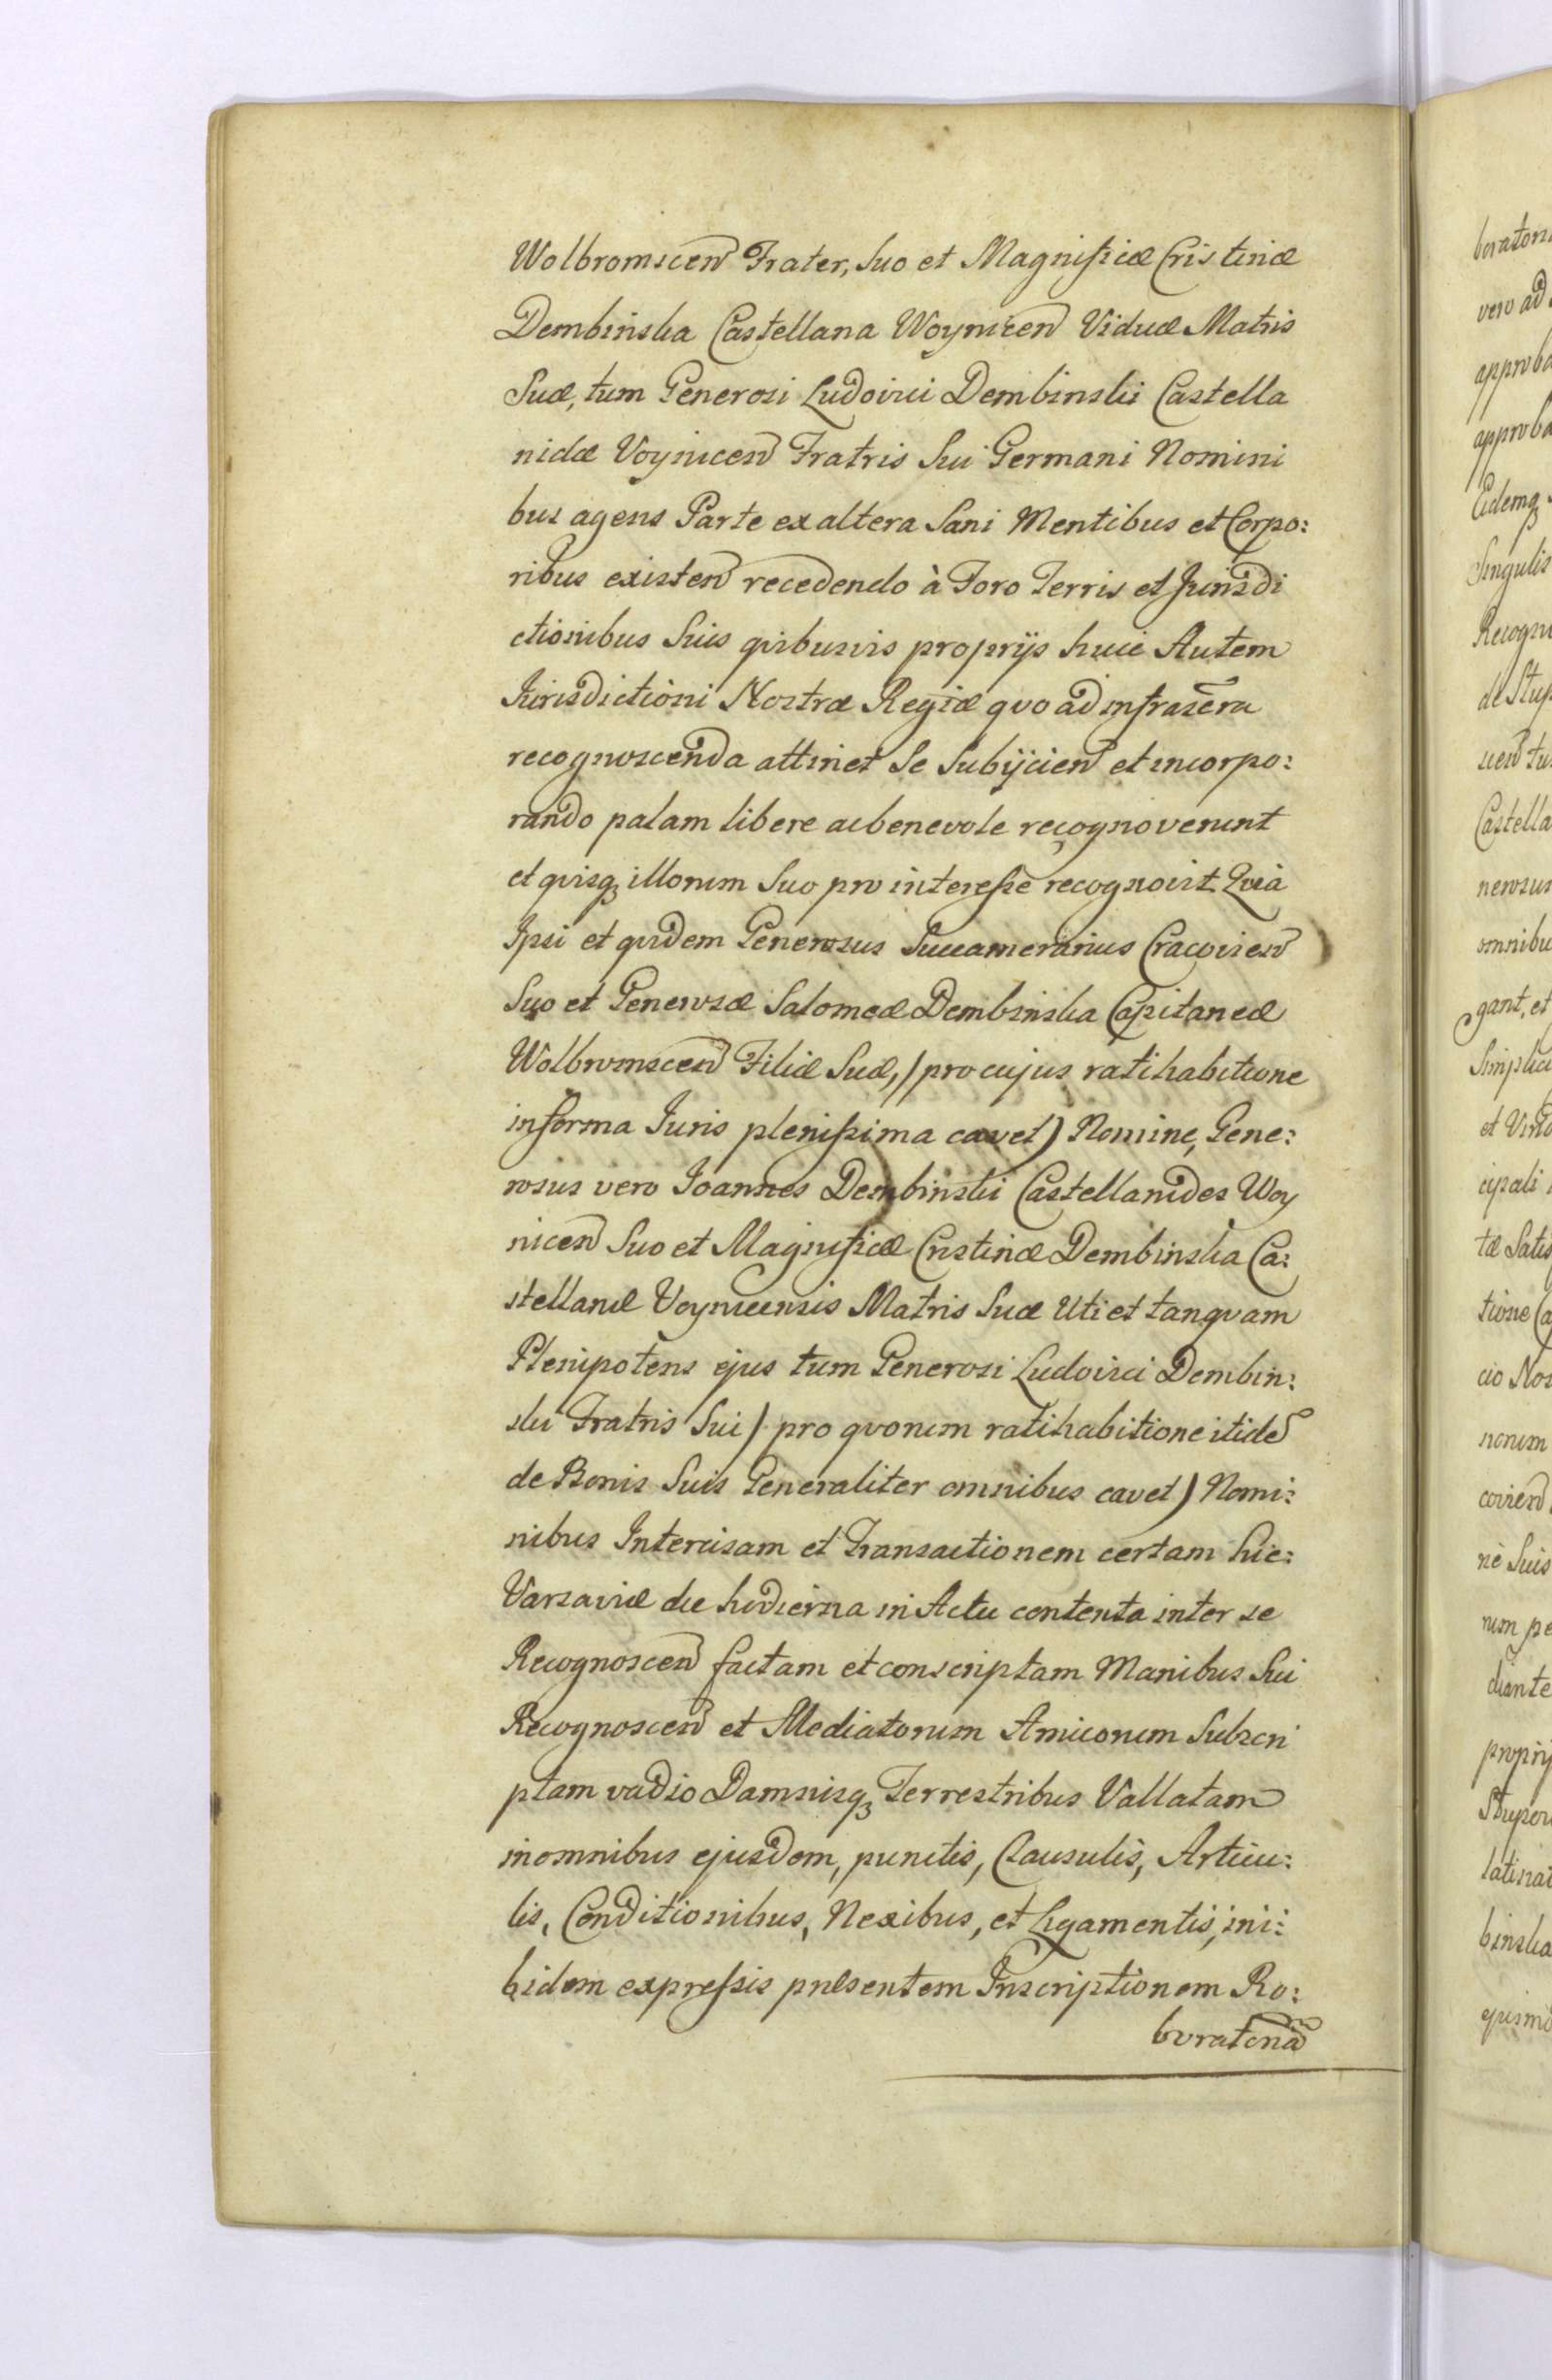 Wolbromscen Frater, Suo et Magnificæ Cristinæ
Dembinska Castellana Woynicen Viduæ Matris
Suæ, tum Generosi Ludovici Dembinski Castella
nidæ Voynicen Fratris Sui Germani Nomini
bus agens Parte ex altera Sani Mentibus et Corpo:
ribus existen recedendo à Foro Terris et Jurisdi
ctionibus Suis quibusvis proprijs huic Autem
Jurisdictioni Nostræ Regiæ quo ad infrascra
recognoscenda attinet Se Subijcien et incorpo:
rando palam libere ac benevole recognoverunt
et quisq illorum Suo pro interesse recognovit Quia
Ipsi et quidem Generosus Succamerarius Cracovien
Suo et Generosæ Salomeæ Dembinska Capitaneæ
Wolbromscen Filiæ Suæ, / pro cujus ratihabitione
in forma Juris plenissima cavet) Nomine, Gene:
rosus vero Joannes Dembinski Castellanides Woy
nicen Suo et Magnificæ Cristinæ Dembinska Ca:
stellanæ Voynicensis Matris Suæ Uti et tanquam
Plenipotens ejus tum Generosi Ludovici Dembin:
ski Fratris Sui / pro quorum ratihabitione itide
de Bonis Suis Generaliter omnibus cavet) Nomi:
nibus Intercisam et Transactionem certam hic:
Varsaviæ die hodierna in Actu contenta inter se
Recognoscen factam et conscriptam Manibus Sui
Recognoscen et Mediatorum Amicorum Subscri
ptam vadio Damnisq Terrestribus Vallatam
in omnibus ejusdem, punctis, Clausulis, Articu:
lis, Conditionibus, Nexibus, et Ligamentis, ini:
bidem expressis præsentem Inscriptionem Ro:
boratoria

boraton
vero ad
approba
approba
Eidemq
Singulis
Recogn
de Stup
cen tu
Castella
nerosus
omnibu
gant, et
Simplici
et Vir
cipali
tæ Satis
tione Ca
cio Nos
norum
covien
ne Suis
rum pe
diante
proprij
Stupon
latinat
binska
ejusmo